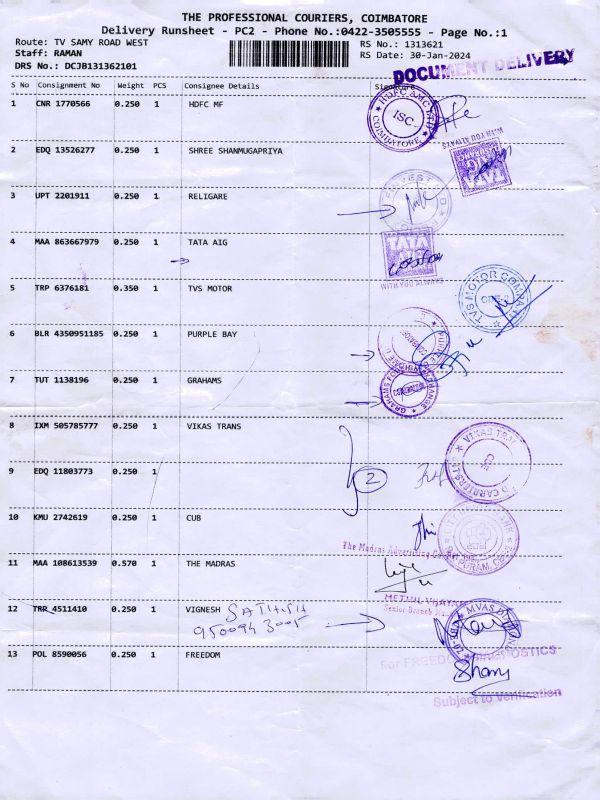 THE PROFESSIONAL COURIERS, COIMBATORE
Delivery Runsheet - PC2 - Phone No.:0422-3505555 - Page No.:1
Route: TV SAMY ROAD WEST
Staff: RAMAN
DRS No.: DCJB131362101
RS No.: 1313621
RS Date: 30-Jan-2024
DOCUMENT DELIVERY
S No Consignment No Weight PCS Consignee Details Signature
1 CNR 1770566 0.250 1 HDFC MF
HDFC AMC
ISC
COIMBATORE
2 EDQ 13526277 0.250 1 SHREE SHANMUGAPRIYA
WITH YOU ALWAYS
TATA
3 UPT 2201911 0.250 1 RELIGARE
4 MAA 863667979 0.250 1 TATA AIG
TATA
WITH YOU ALWAYS
5 TRP 6376181 0.350 1 TVS MOTOR
TVS MOTOR COMPANY
6 BLR 4350951185 0.250 1 PURPLE BAY
7 TUT 1138196 0.250 1 GRAHAMS
8 IXM 505785777 0.250 1 VIKAS TRANS
VIKAS TRAN
9 EDQ 11803773 0.250 1
2
10 KMU 2742619 0.250 1 CUB
The Madras Advertising Co
11 MAA 108613539 0.570 1 THE MADRAS
Senior Branch
12 TRR 4511410 0.250 1 VIGNESH SATHISH
9500943005
13 POL 8590056 0.250 1 FREEDOM
For FREEDOM DIAGNOSTICS
Sham
Subject to Verification